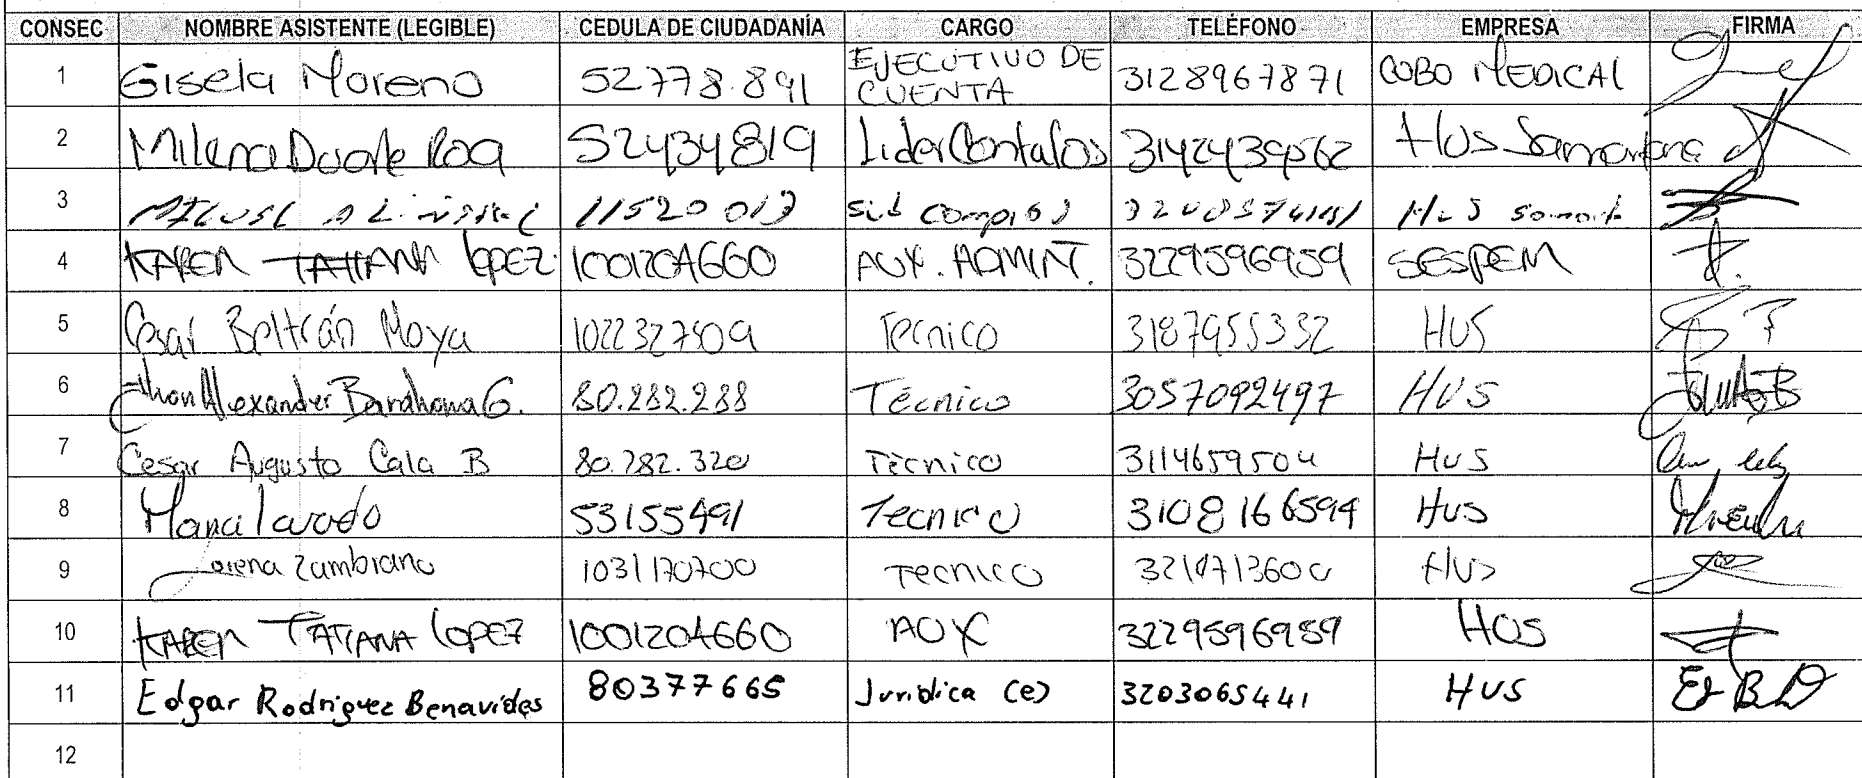 CONSEC NOMBRE ASISTENTE (LEGIBLE) CEDULA DE CIUDADANÍA CARGO TELÉFONO EMPRESA FIRMA
1 Gisela Moreno 52778.891 EJECUTIVO DE CUENTA 3128967871 COBO MEDICAL
2 Milena Duarte Roa 52434819 Lider Contratos 3142439562 HUS Samaritana
3 11520013 Sub compras HUS
4 KAREN TATIANA LOPEZ 1001204660 AUX. ADMINT. 3229596959 SESPEM
5 Cesar Beltrán Moya 1022327509 Tecnico 3187955332 HUS
6 Jhon Alexander Barahona G. 80.282.288 Técnico 3057092497 HUS
7 Cesar Augusto Cala B 80.282.320 Técnico 3114659504 HUS
8 53155491 Tecnico 3108166594 HUS
9 Lorena Zambrano 1031170700 Tecnico HUS
10 KAREN TATIANA LOPEZ 1001204660 AUX 3229596959 HUS
11 Edgar Rodriguez Benavides 80377665 Juridica (e) 3203065441 HUS
12